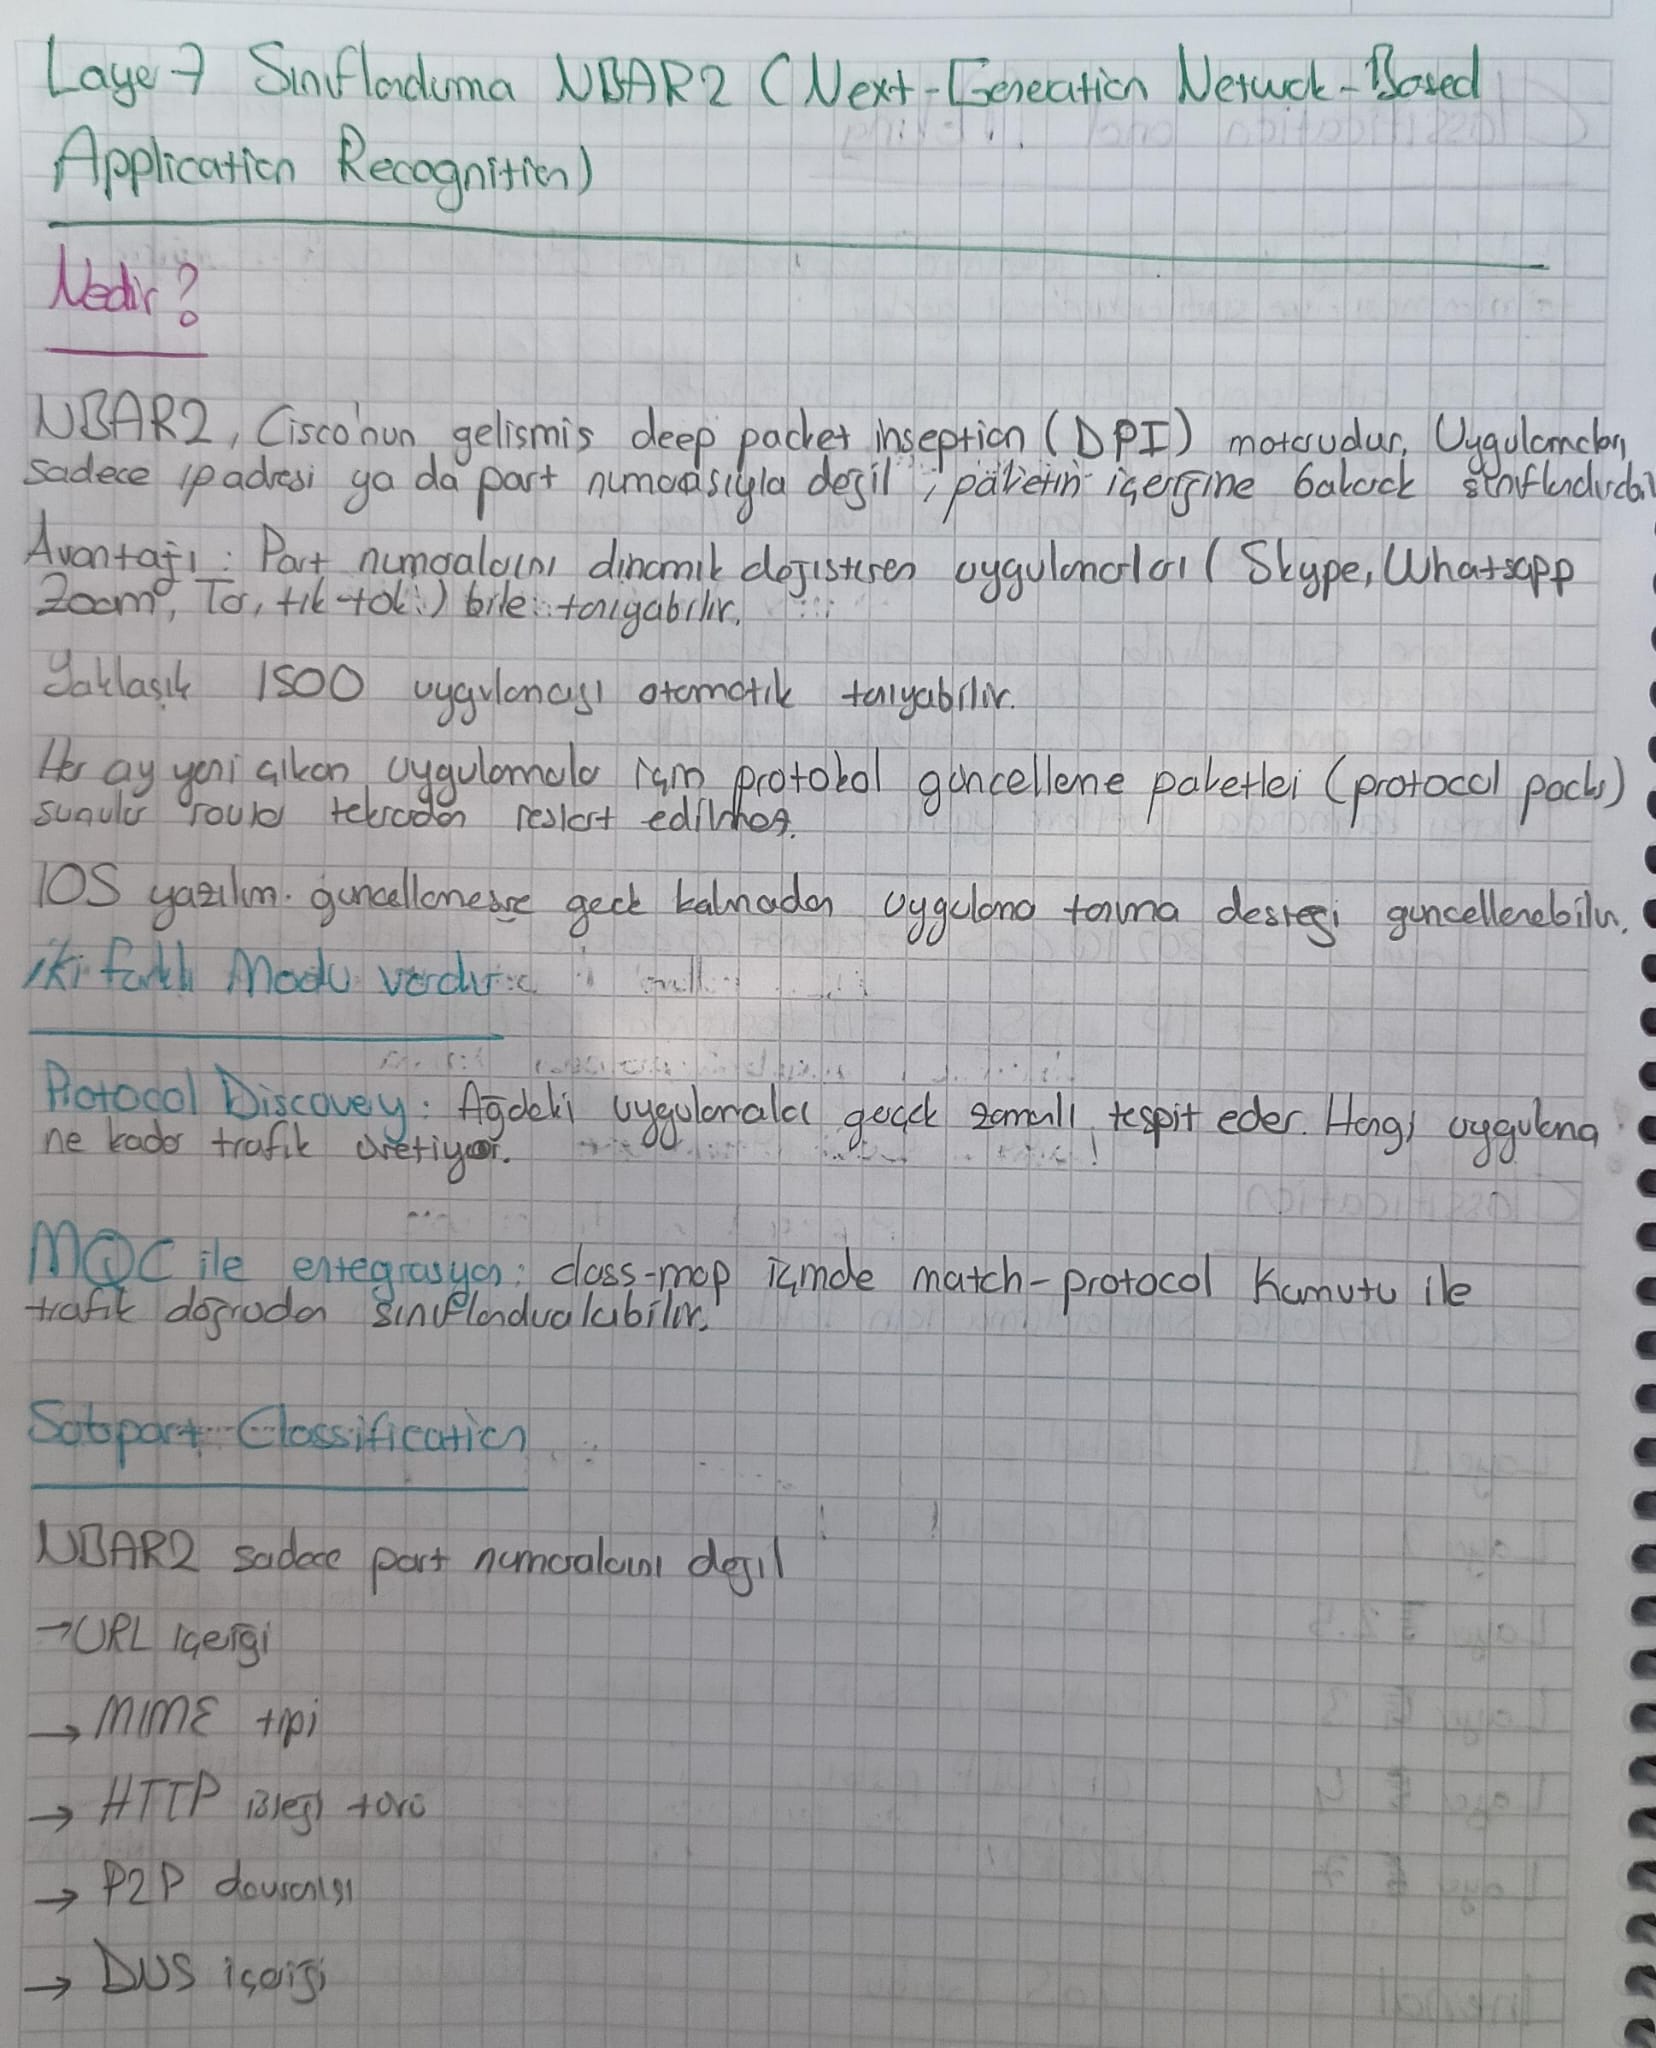 Layer 7 Sınıflandırma NBAR2 (Next-Generation Network-Based
Application Recognition)
Nedir?
NBAR2, Cisco'nun gelismis deep packet inseption (DPI) motorudur, Uygulamaları
sadece ip adresi ya da port numarasıyla değil, paketin içerğine bakarak sınıflandırabilir
Avantajı: Port numaralarını dinamik değistiren uygulamaları (Skype, Whatsapp
Zoom, Tor, tık-tok.) bile tanıyabilir.
Yaklaşık 1500 uygulamayı otomatik tanıyabilir.
Her ay yeni çıkan uygulamalar için protokol güncelleme paketleri (protocol packs)
sunulur router tekradan restart edilmez.
IOS yazılım güncellemesine gerek kalmadan uygulama tanıma desteği güncellenebilir.
iki farklı Modu vardır:
Protocol Discovery: Ağdeki uygulamaları gerçek zamanlı tespit eder. Hangi uygulama
ne kadar trafik üretiyor.
MQC ile entegrasyon: class-map içinde match-protocol Komutu ile
trafik doğrudan sınıflandırılabilir.
Sobport Classification
NBAR2 sadece port numaralarını değil
→URL içeriği
→ MIME tipi
→ HTTP isteği türü
→ P2P davranışı
→ DNS içeriği